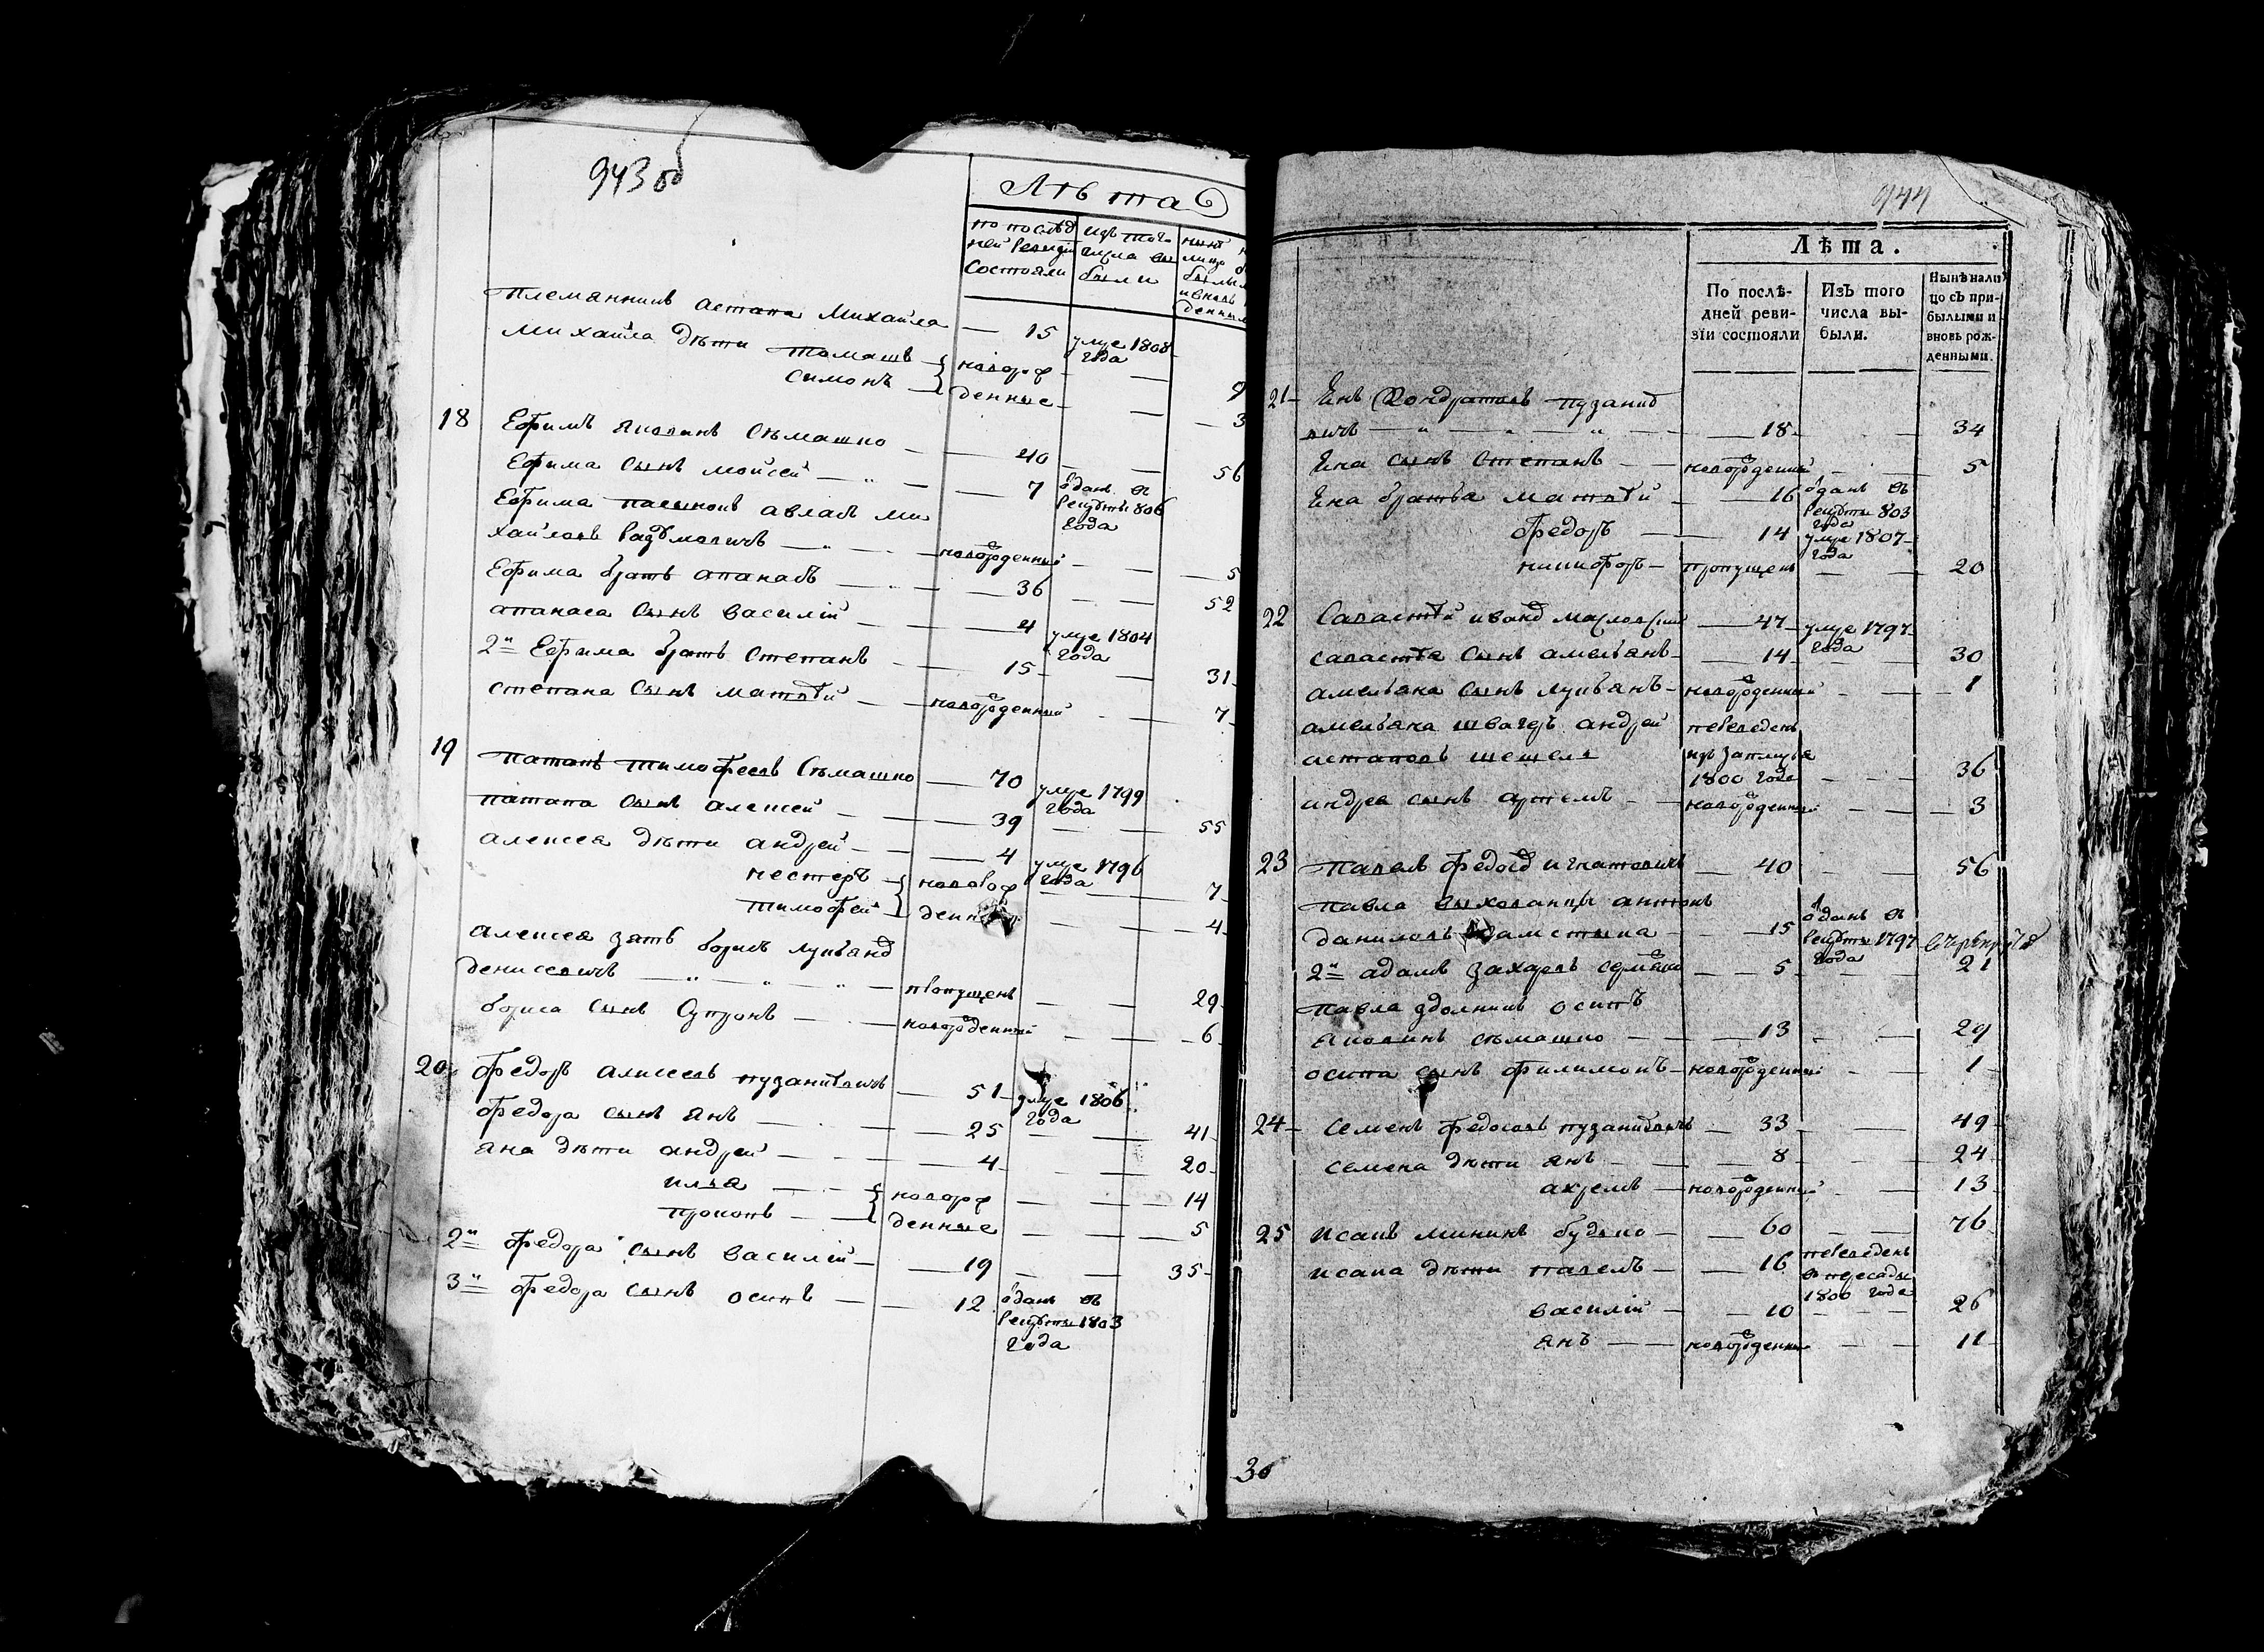 943 об
Лѣта
по послѣд
ней ревизіи
состояли
изъ того
числа вы
были
нынѣ
лицо
былы
и вновь
денным
племянникъ астапа Михайла — 15 умре 1808
года
Михайла дѣти томашъ — новорож — 9
симонъ — денные — 3
18 Ефимъ яковлевъ Сѣмашко — 40 — 56
Ефима сынъ мойсей — 7 отданъ въ
рекруты 806
года
Ефима пасынокъ авласъ ми
хайловъ — новорожденный — 5
Ефима братъ апанасъ — 36 — 52
апанаса сынъ василій — 4 умре 1804
года
2й Ефима братъ степанъ — 15 — 31
степана сынъ матвей — новорожденный — 7
19 патапъ тимофеевъ Сѣмашко — 70 умре 1799
года
патапа сынъ алексей — 39 — 55
алексея дѣти андрей — 4 умре 1796
года
нестеръ — новорож — 7
тимофей — денн — 4
алексея зять борисъ
денисевичъ — пропущенъ — 29
бориса сынъ Супронъ — новорожденный — 6
20 федоръ алисеевъ — 51 умре 1806
года
федора сынъ янъ — 25 — 41
яна дѣти андрей — 4 — 20
илья — новорож — 14
прокопъ — денные — 5
2й федора сынъ василій — 19 — 35
3й федора сынъ осипъ — 12 отданъ въ
рекруты 1803
года
944
Лѣта.
По послѣ-
дней реви-
зіи состояли
Изъ того
числа вы-
были.
Нынѣ нали
цо съ при-
былыми и
вновь рож-
денными.
21 Янъ Кондратовъ
вичъ — 18 — 34
Яна сынъ Степанъ — новорожденный — 5
Яна братья матвей — 16 отданъ въ
рекруты 803
года
федоръ — 14 умре 1807
года
никифоръ — пропущенъ — 20
22 Савастей — 47 умре 1797
года
савастея сынъ амельянъ — 14 — 30
амельяна сынъ лукьянъ — новорожденный — 1
амельяна швагеръ андрей переведенъ
астаповъ шешеля изъ
1800 года — 36
андрея сынъ артемъ — новорожденный — 3
23 павелъ игнатовичъ — 40 — 56
павла антонъ
даниловъ — 15 отданъ въ
рекруты 1797
года
2й адамъ захаровъ — 5 — 21
павла осипъ
яковлевъ сѣмашко — 13 — 29
осипа сынъ филимонъ — новорожденный — 1
24 семенъ федосовъ — 33 — 49
семена дѣти янъ — 8 — 24
ахремъ — новорожденный — 13
25 исакъ мининъ будько — 60 — 76
исака дѣти павелъ — 16 переведенъ
1800 года
василій — 10 — 26
янъ — новорожденный — 11
36